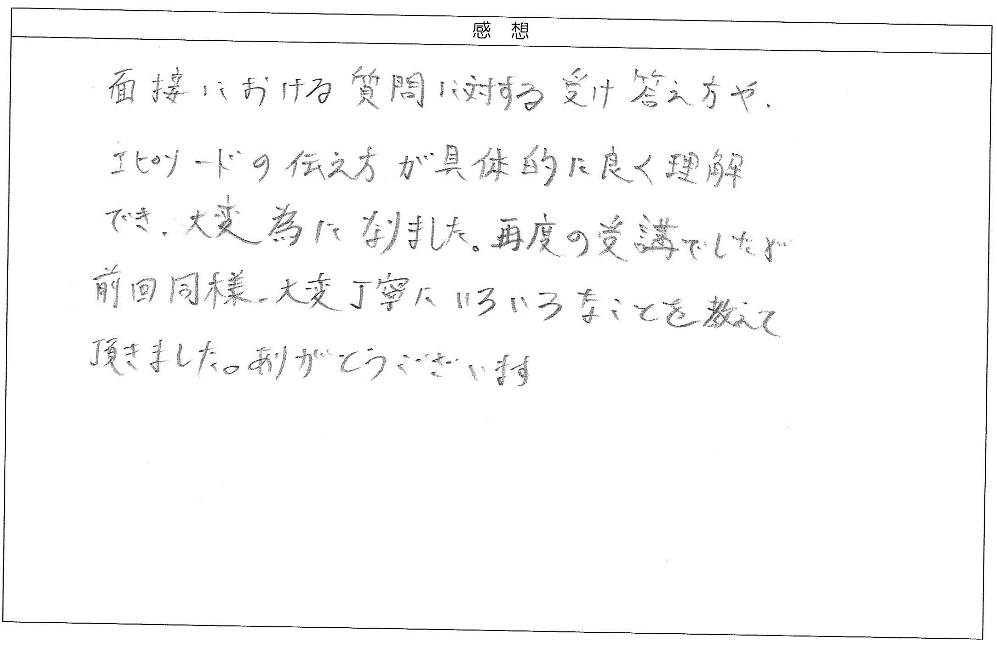 感想
面接における質問に対する受け答え方や、
エピソードの伝え方が具体的に良く理解
でき、大変為になりました。再度の受講でしたが
前回同様、大変丁寧にいろいろなことを教えて
頂きました。ありがとうございます